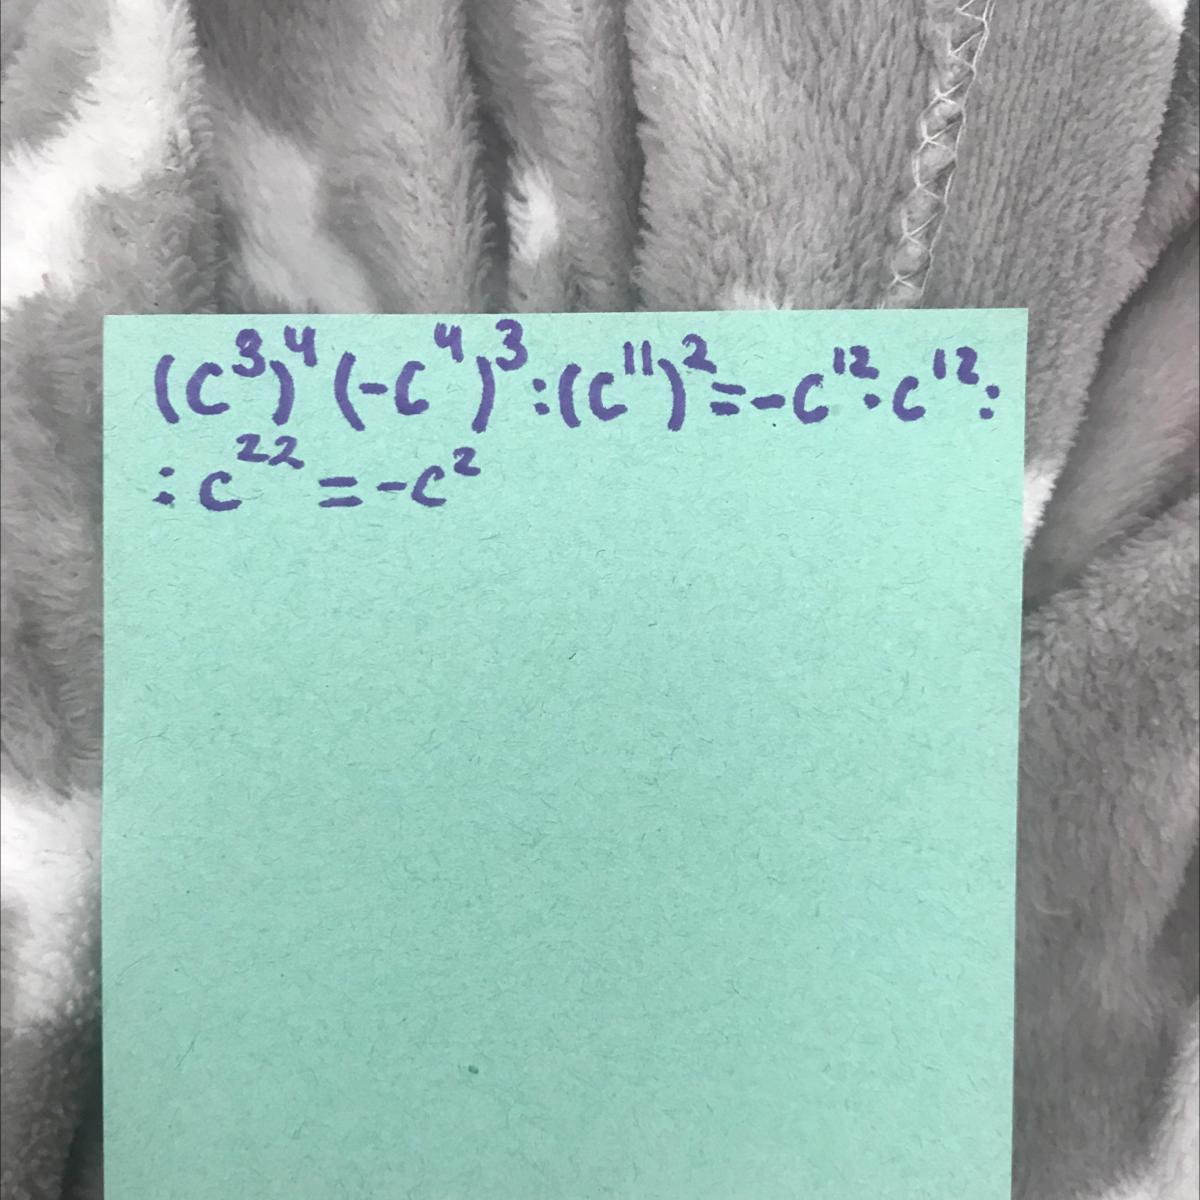 (c³)⁴(-c⁴)³:(c¹¹)²=-c¹²·c¹²:
:c²²=-c²